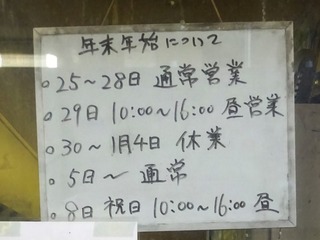 年末年始について
○25～28日 通常営業
○29日 10:00～16:00 昼営業
○30～1月4日 休業
○5日～ 通常
○8日 祝日 10:00～16:00 昼